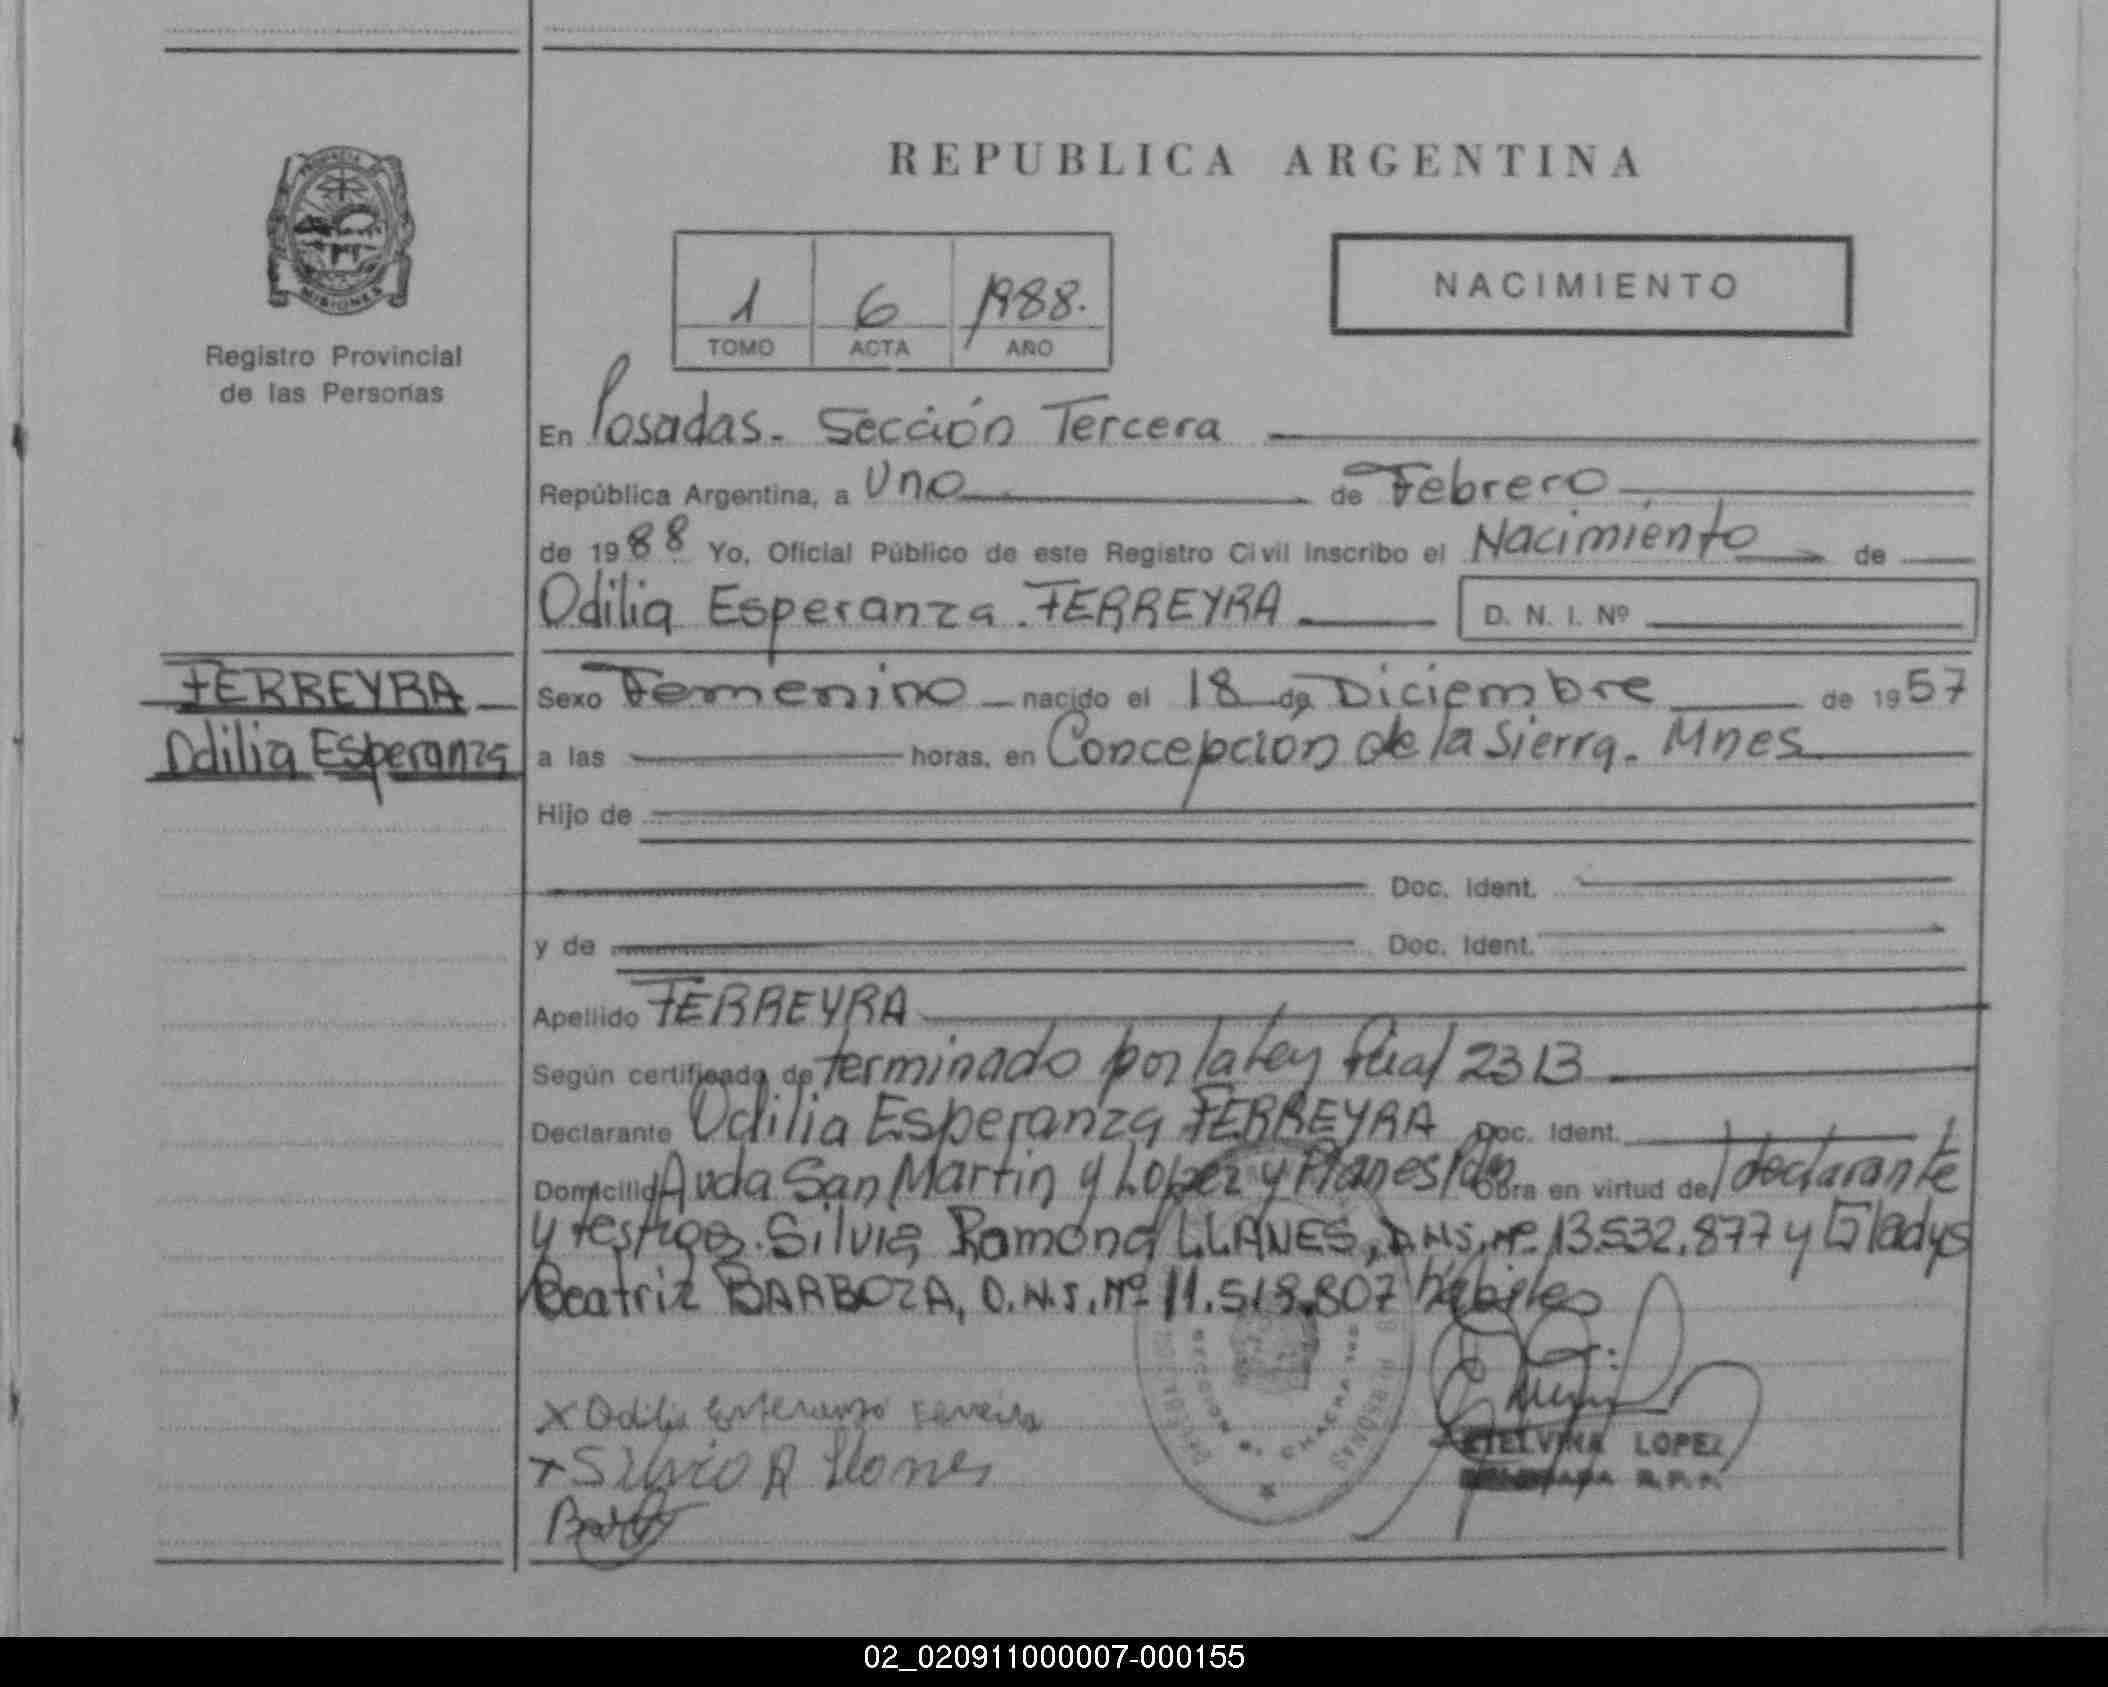 REPUBLICA ARGENTINA
PROVINCIA
MISIONES
Registro Provincial
de las Personas
1 6 1988.
TOMO ACTA AÑO
NACIMIENTO
En Posadas. Sección Tercera
República Argentina, a Uno de Febrero
de 1988 Yo, Oficial Público de este Registro Civil inscribo el Nacimiento de
Odilia Esperanza. FERREYRA D. N. I. Nº
FERREYRA
Odilia Esperanza
Sexo Femenino nacido el 18 de Diciembre de 1957
a las horas, en Concepcion de la Sierra. Mnes
Hijo de
Doc. Ident.
y de Doc. Ident.
Apellido FERREYRA
Según certificado de terminado por la Ley 2313
Declarante Odilia Esperanza FERREYRA Doc. Ident.
Domicilio Avda San Martin y Lopez y Planes Obra en virtud de declarante
y testigos. Silvia Ramona LLANES, D.N.I, Nº 13.532.877 y Gladys
Beatriz BARBOZA, D.N.I, Nº 11.518.807 hábiles
x Odilia
x Silvia R Llanes
ETELVINA LOPEZ
DELEGADA R.P.P.
02_020911000007-000155